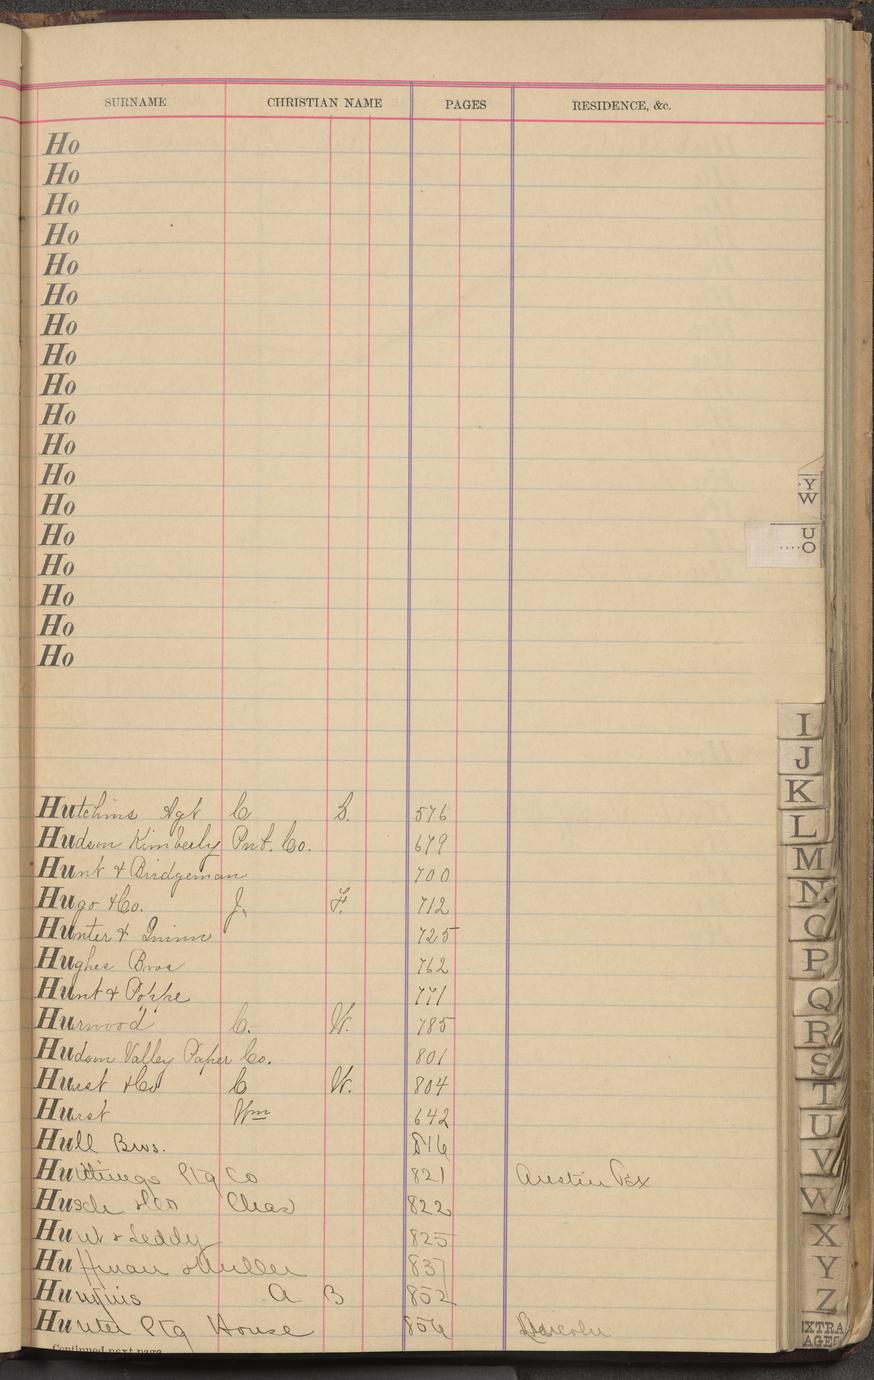 SURNAME CHRISTIAN NAME PAGES RESIDENCE, &c.
Ho
Ho
Ho
Ho
Ho
Ho
Ho
Ho
Ho
Ho
Ho
Ho
Ho
Ho
Ho
Ho
Ho
Ho
Hutchins Agt C S. 576
Hudson Kimberly Pnt. Co. 679
Hunt & Bridgeman 700
Hugo & Co. J. F. 712
Hunter & Quinn 725
Hughes Bros 762
Hunt & Poppe 771
Hurwood C. W. 785
Hudson Valley Paper Co. 801
Hurst & Co C W. 804
Hurst Wm 642
Hull Bros. 816
Hutchings Ptg Co 821 Austin Tex
Husch & Co Chas 822
Hunt & Leddy 825
Huffman & Muller 837
Hunkins A B 852
Hunter Ptg House 856 Lincoln
Continued next page
Y
W
U
O
I
J
K
L
M
N.
O
P
Q
R
S
T
U
V
W
X
Y
Z
EXTRA
AGES